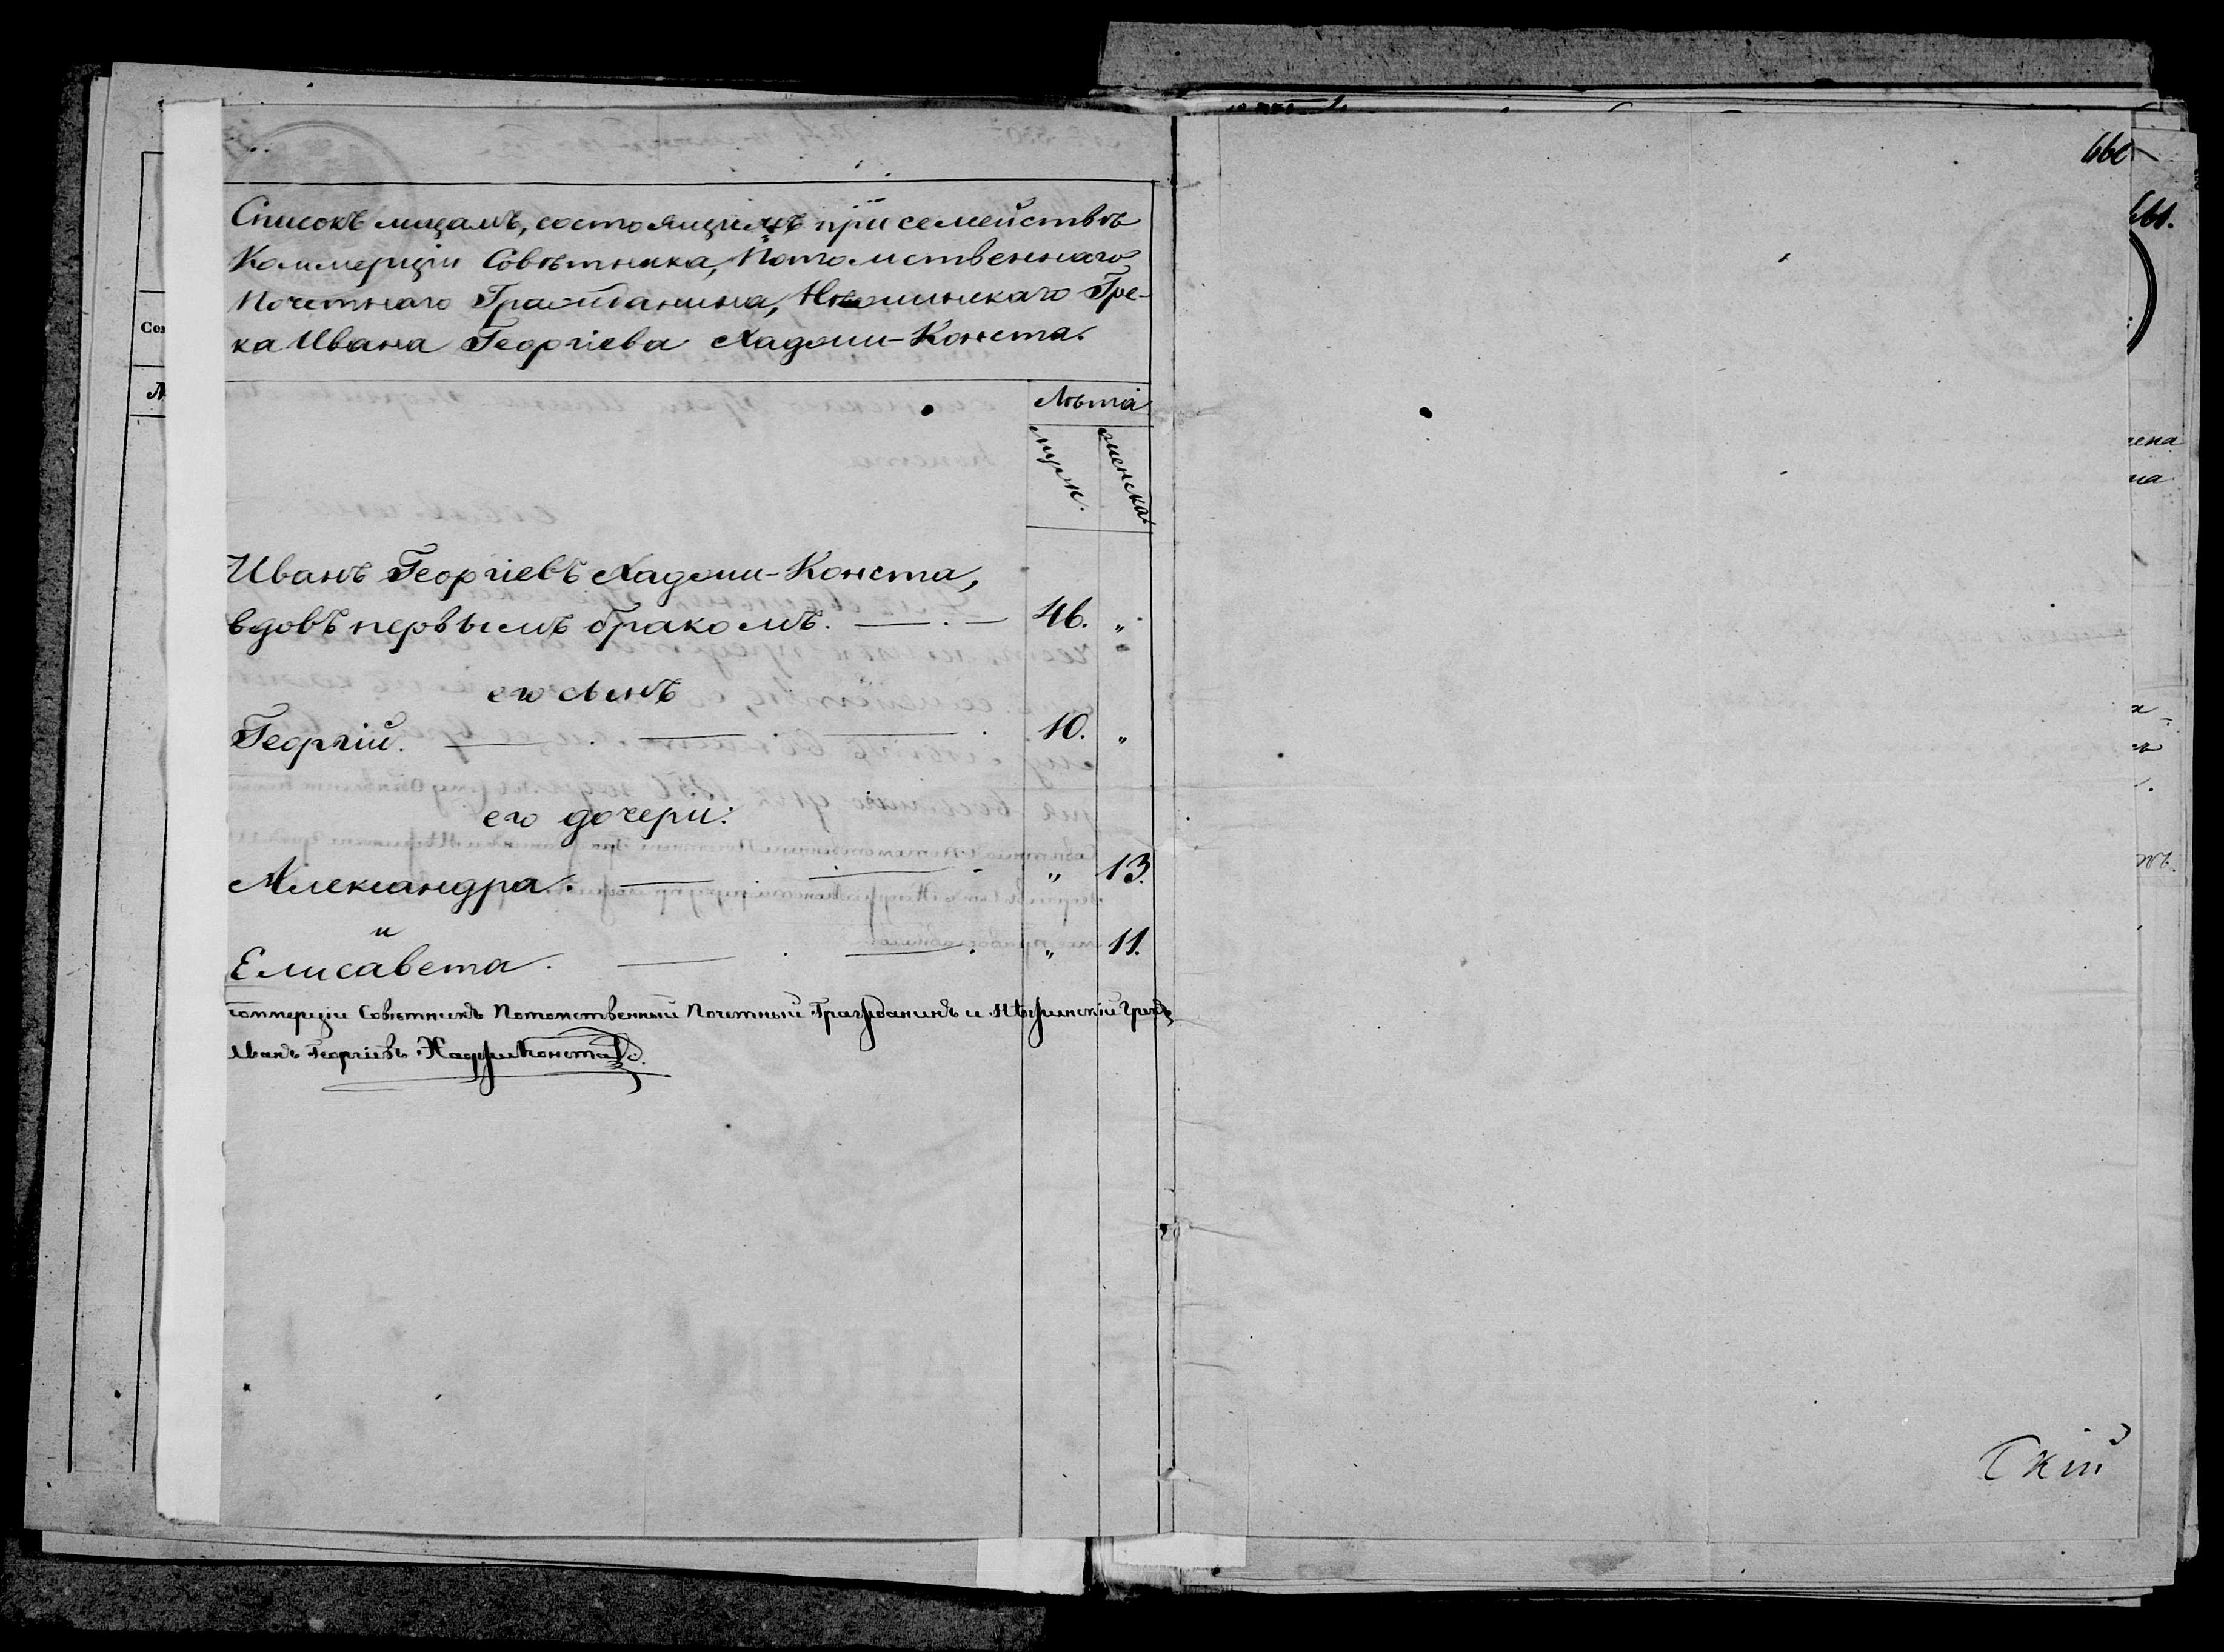 Списокъ лицамъ, состоящимъ при семействѣ
Коммерціи Совѣтника, Потомственнаго
Почетнаго Гражданина, Нѣжинскаго Гре-
ка Ивана Георгіева Хаджи-Конста.
Лѣта
муж.
женска.
Иванъ Георгіевъ Хаджи-Конста,
вдовъ первымъ бракомъ. 46. „
его сынъ
Георгій. 10. „
его дочери:
Александра. „ 13.
и
Елисавета. „ 11.
Коммерціи Совѣтникъ Потомственный Почетный Гражданинъ и Нѣжинскій Грекъ
Иванъ Георгіевъ Хаджи Конста
661.
скій